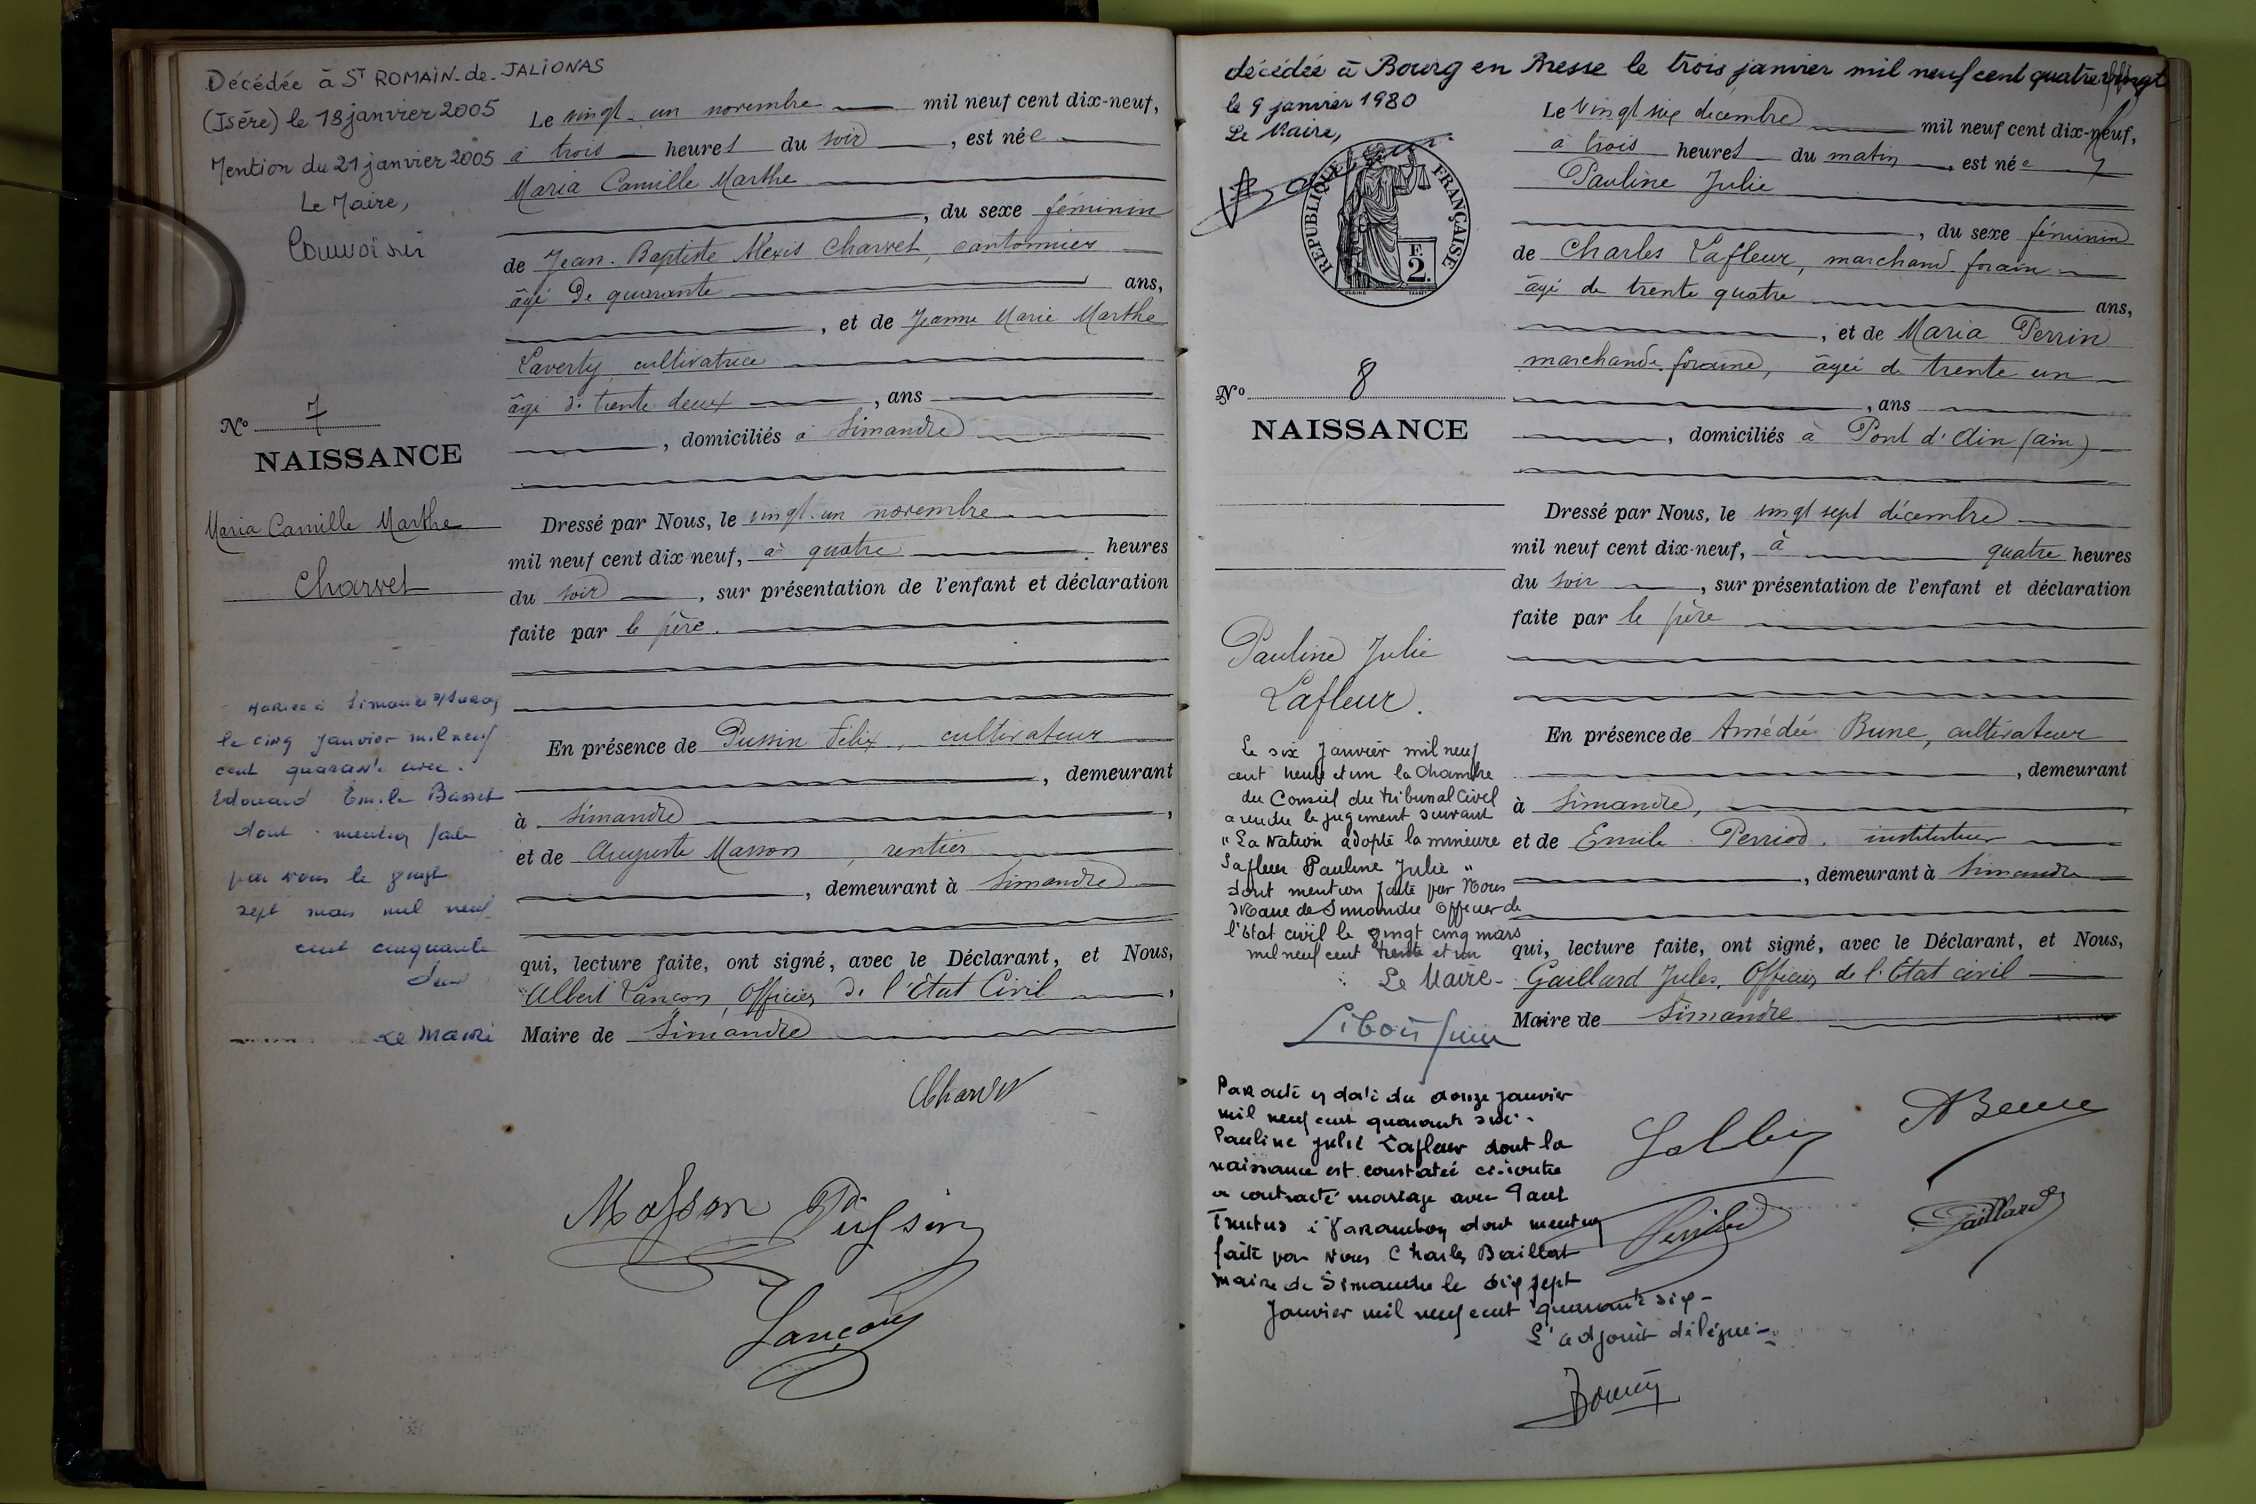 Décédée à St ROMAIN-de-JALIONAS
(Isère) le 18 janvier 2005
Mention du 21 janvier 2005
Le Maire,
No 7
NAISSANCE
Maria Camille Marthe
Charvet
Mariée à Simandre s/Suran
le cinq janvier mil neuf
cent quarante avec
Edouard Emile Basset
dont mention faite
par nous le vingt
sept mars mil neuf
cent cinquante
deux
Le Maire
Le vingt-un novembre mil neuf cent dix-neuf,
à trois heures du soir, est née
Maria Camille Marthe
, du sexe féminin
de Jean-Baptiste Alexis Charvet, cantonnier
âgé de quarante ans,
, et de Jeanne Marie Marthe
Laverty cultivatrice
âgé de trente deux, ans
, domiciliés à Simandre
Dressé par Nous, le vingt-un novembre
mil neuf cent dix neuf, à quatre heures
du soir, sur présentation de l'enfant et déclaration
faite par le père.
En présence de Pussin Félix, cultivateur
, demeurant
à Simandre,
et de Auguste Masson, rentier
, demeurant à Simandre
qui, lecture faite, ont signé, avec le Déclarant, et Nous,
Albert Lançon, Officier de l'Etat Civil,
Maire de Simandre
Charvet
Masson Pussin
Lançon
décédée à Bourg en Bresse le trois janvier mil neuf cent quatre vingt
le 9 janvier 1980
Le Maire,
RÉPUBLIQUE FRANÇAISE
F.
2.
No 8
NAISSANCE
Pauline Julie
Lafleur.
Le six Janvier mil neuf
cent trente et un la Chambre
du Conseil du tribunal Civil
a rendu le jugement suivant
"La Nation adopte la mineure
Lafleur Pauline Julie"
dont mention faite par Nous
Maire de Simandre Officier de
l'état civil le vingt cinq mars
mil neuf cent trente et un
Le Maire-
Par acte en date du douze janvier
mil neuf cent quarante six
Pauline Julie Lafleur dont la
naissance est constatée ci-contre
a contracté mariage avec Paul
à Varambon dont mention
faite par nous Charles Baillat
maire de Simandre le dix sept
Janvier mil neuf cent quarante six-
L'adjoint délégué-
Le vingt six décembre mil neuf cent dix-neuf,
à trois heures du matin, est née
Pauline Julie
, du sexe féminin
de Charles Lafleur, marchand forain
âgé de trente quatre ans,
, et de Maria Perrin
marchande foraine, âgée de trente un
, ans
, domiciliés à Pont d'Ain (ain)
Dressé par Nous, le vingt sept décembre
mil neuf cent dix-neuf, à quatre heures
du soir, sur présentation de l'enfant et déclaration
faite par le père
En présence de Amédée Bune, cultivateur
, demeurant
à Simandre,
et de Emile Perriod, instituteur
, demeurant à Simandre
qui, lecture faite, ont signé, avec le Déclarant, et Nous,
Gaillard Jules, Officier de l'Etat civil
Maire de Simandre
Gaillard